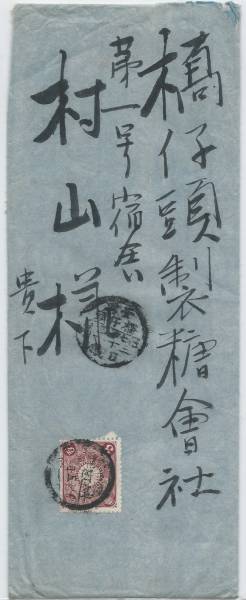 橋仔頭製糖會社
第一号宿舎
村山様
貴下